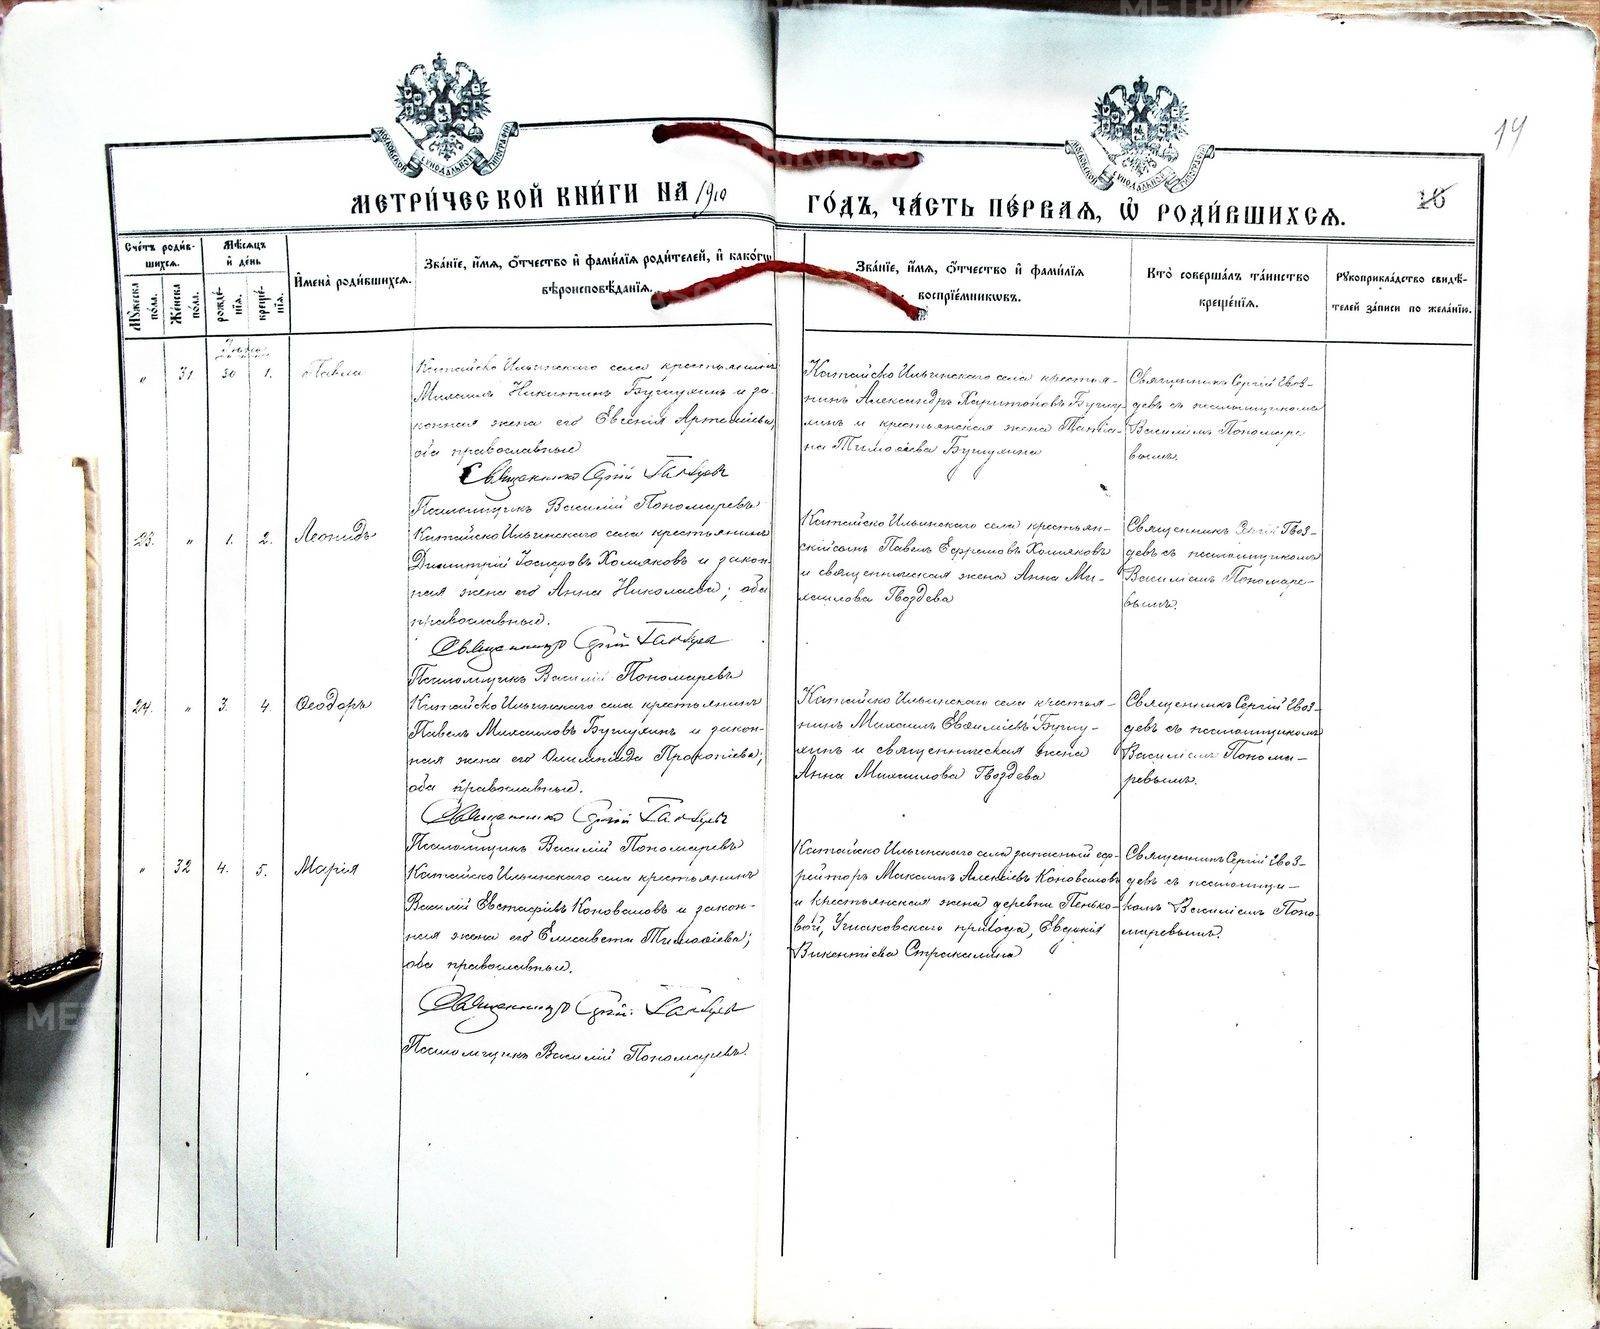 14
МОСКОВСКОЙ СѴНОДАЛЬНОЙ ТИПОГРАФІИ
МОСКОВСКОЙ СѴНОДАЛЬНОЙ ТИПОГРАФІИ
МЕТРИ́ЧЕСКОЙ КНИ́ГИ НА 1910
ГО́ДЪ, ЧА́СТЬ ПЕ́РВАЯ, Ѽ РОДИ́ВШИХСЯ.
16
Сче́тъ роди́в-
шихся.
Мѣ́сяцъ
и҆ де́нь
Му́жеска по́ла.
Же́нска по́ла.
рожде́-
нїя.
креще́-
нїя.
И҆мена̀ роди́вшихся.
Зва́нїе, и҆́мя, о҆́тчество и҆ фами́лїя роди́телей, и҆ како́гѡ
вѣроисповѣ́данїя.
Зва́нїе, и҆́мя, о҆́тчество и҆ фами́лїя
воспрїе́мникѡвъ.
Кто̀ соверша́лъ та́инство
креще́нїя.
Рꙋкоприкла́дство свидѣ́-
телей за́писи по жела́нїю.
" 31 30 1. Павла
Катайско Ильинскаго села крестьянинъ
Михаилъ Никитинъ Бушухинъ и за-
конная жена его Евгенія Артеміева,
оба православные
Священникъ Сергій Гвоздевъ
Псаломщикъ Василій Пономаревъ
Катайско Ильинскаго села крестья-
нинъ Александръ Харитоновъ Бушу-
хинъ и крестьянская жена Татіа-
на Тимоѳеева Бушухина
Священникъ Сергій Гвоз-
девъ съ псаломщикомъ
Василіемъ Пономаре
вымъ.
23. " 1. 2. Леонидъ
Катайско Ильинскаго села крестьянинъ
Димитрій Іосифовъ Хомяковъ и закон-
ная жена его Анна Николаева; оба
православные.
Священникъ Сергій Гвоздевъ
Псаломщикъ Василій Пономаревъ
Катайско Ильинскаго села крестьян-
скій сынъ Павелъ Ефремовъ Хомяковъ
и священническая жена Анна Ми-
хаилова Гвоздева
Священникъ Сергій Гвоз-
девъ съ псаломщикомъ
Василіемъ Пономаре-
вымъ.
24. " 3. 4. Ѳеодоръ
Катайско Ильинскаго села крестьянинъ
Павелъ Михаиловъ Бушухинъ и закон-
ная жена его Олимпіада Прокопіева;
оба православные.
Священникъ Сергій Гвоздевъ
Псаломщикъ Василій Пономаревъ
Катайско Ильинскаго села крестья-
нинъ Михаилъ Евѳиміевъ Бушу-
хинъ и священническая жена
Анна Михаилова Гвоздева
Священникъ Сергій Гвоз-
девъ съ псаломщикомъ
Василіемъ Понома-
ревымъ.
" 32 4. 5. Марія
Катайско Ильинскаго села крестьянинъ
Василій Евстафіевъ Коноваловъ и закон-
ная жена его Елисавета Тимоѳеева;
оба православные.
Священникъ Сергій Гвоздевъ
Псаломщикъ Василій Пономаревъ.
Катайско Ильинскаго села запасный еф-
рейторъ Максимъ Алексіевъ Коноваловъ
и крестьянская жена деревни Пенько-
вой, Ушаковскаго прихода, Евдокія
Викентіева Стракалина
Священникъ Сергій Гвоз-
девъ съ псаломщи-
комъ Василіемъ Поно-
маревымъ.